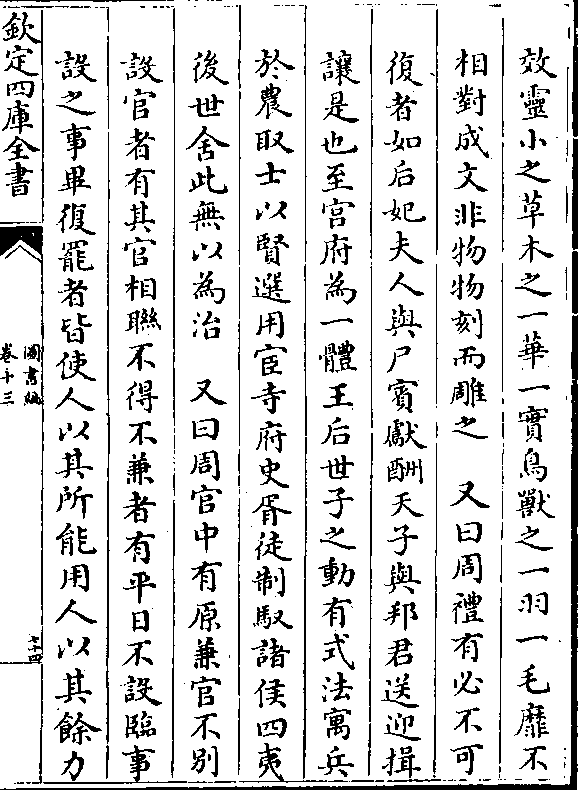 效靈小之草木之一華一實鳥獸之一羽一毛靡不
相對成文非物物刻而雕之　又曰周禮有必不可
復者如后妃夫人與尸賓獻酬天子與邦君送迎揖
讓是也至宫府為一體王后世子之動有式法寓兵
於農取士以賢選用宦寺府史胥徒制馭諸侯四夷
後世舍此無以為治　又曰周官中有原兼官不别
設官者有其官相聯不得不兼者有平日不設臨事
設之事畢復罷者皆使人以其所能用人以其餘力
欽定四庫全書
圖書編
卷十三
七十四